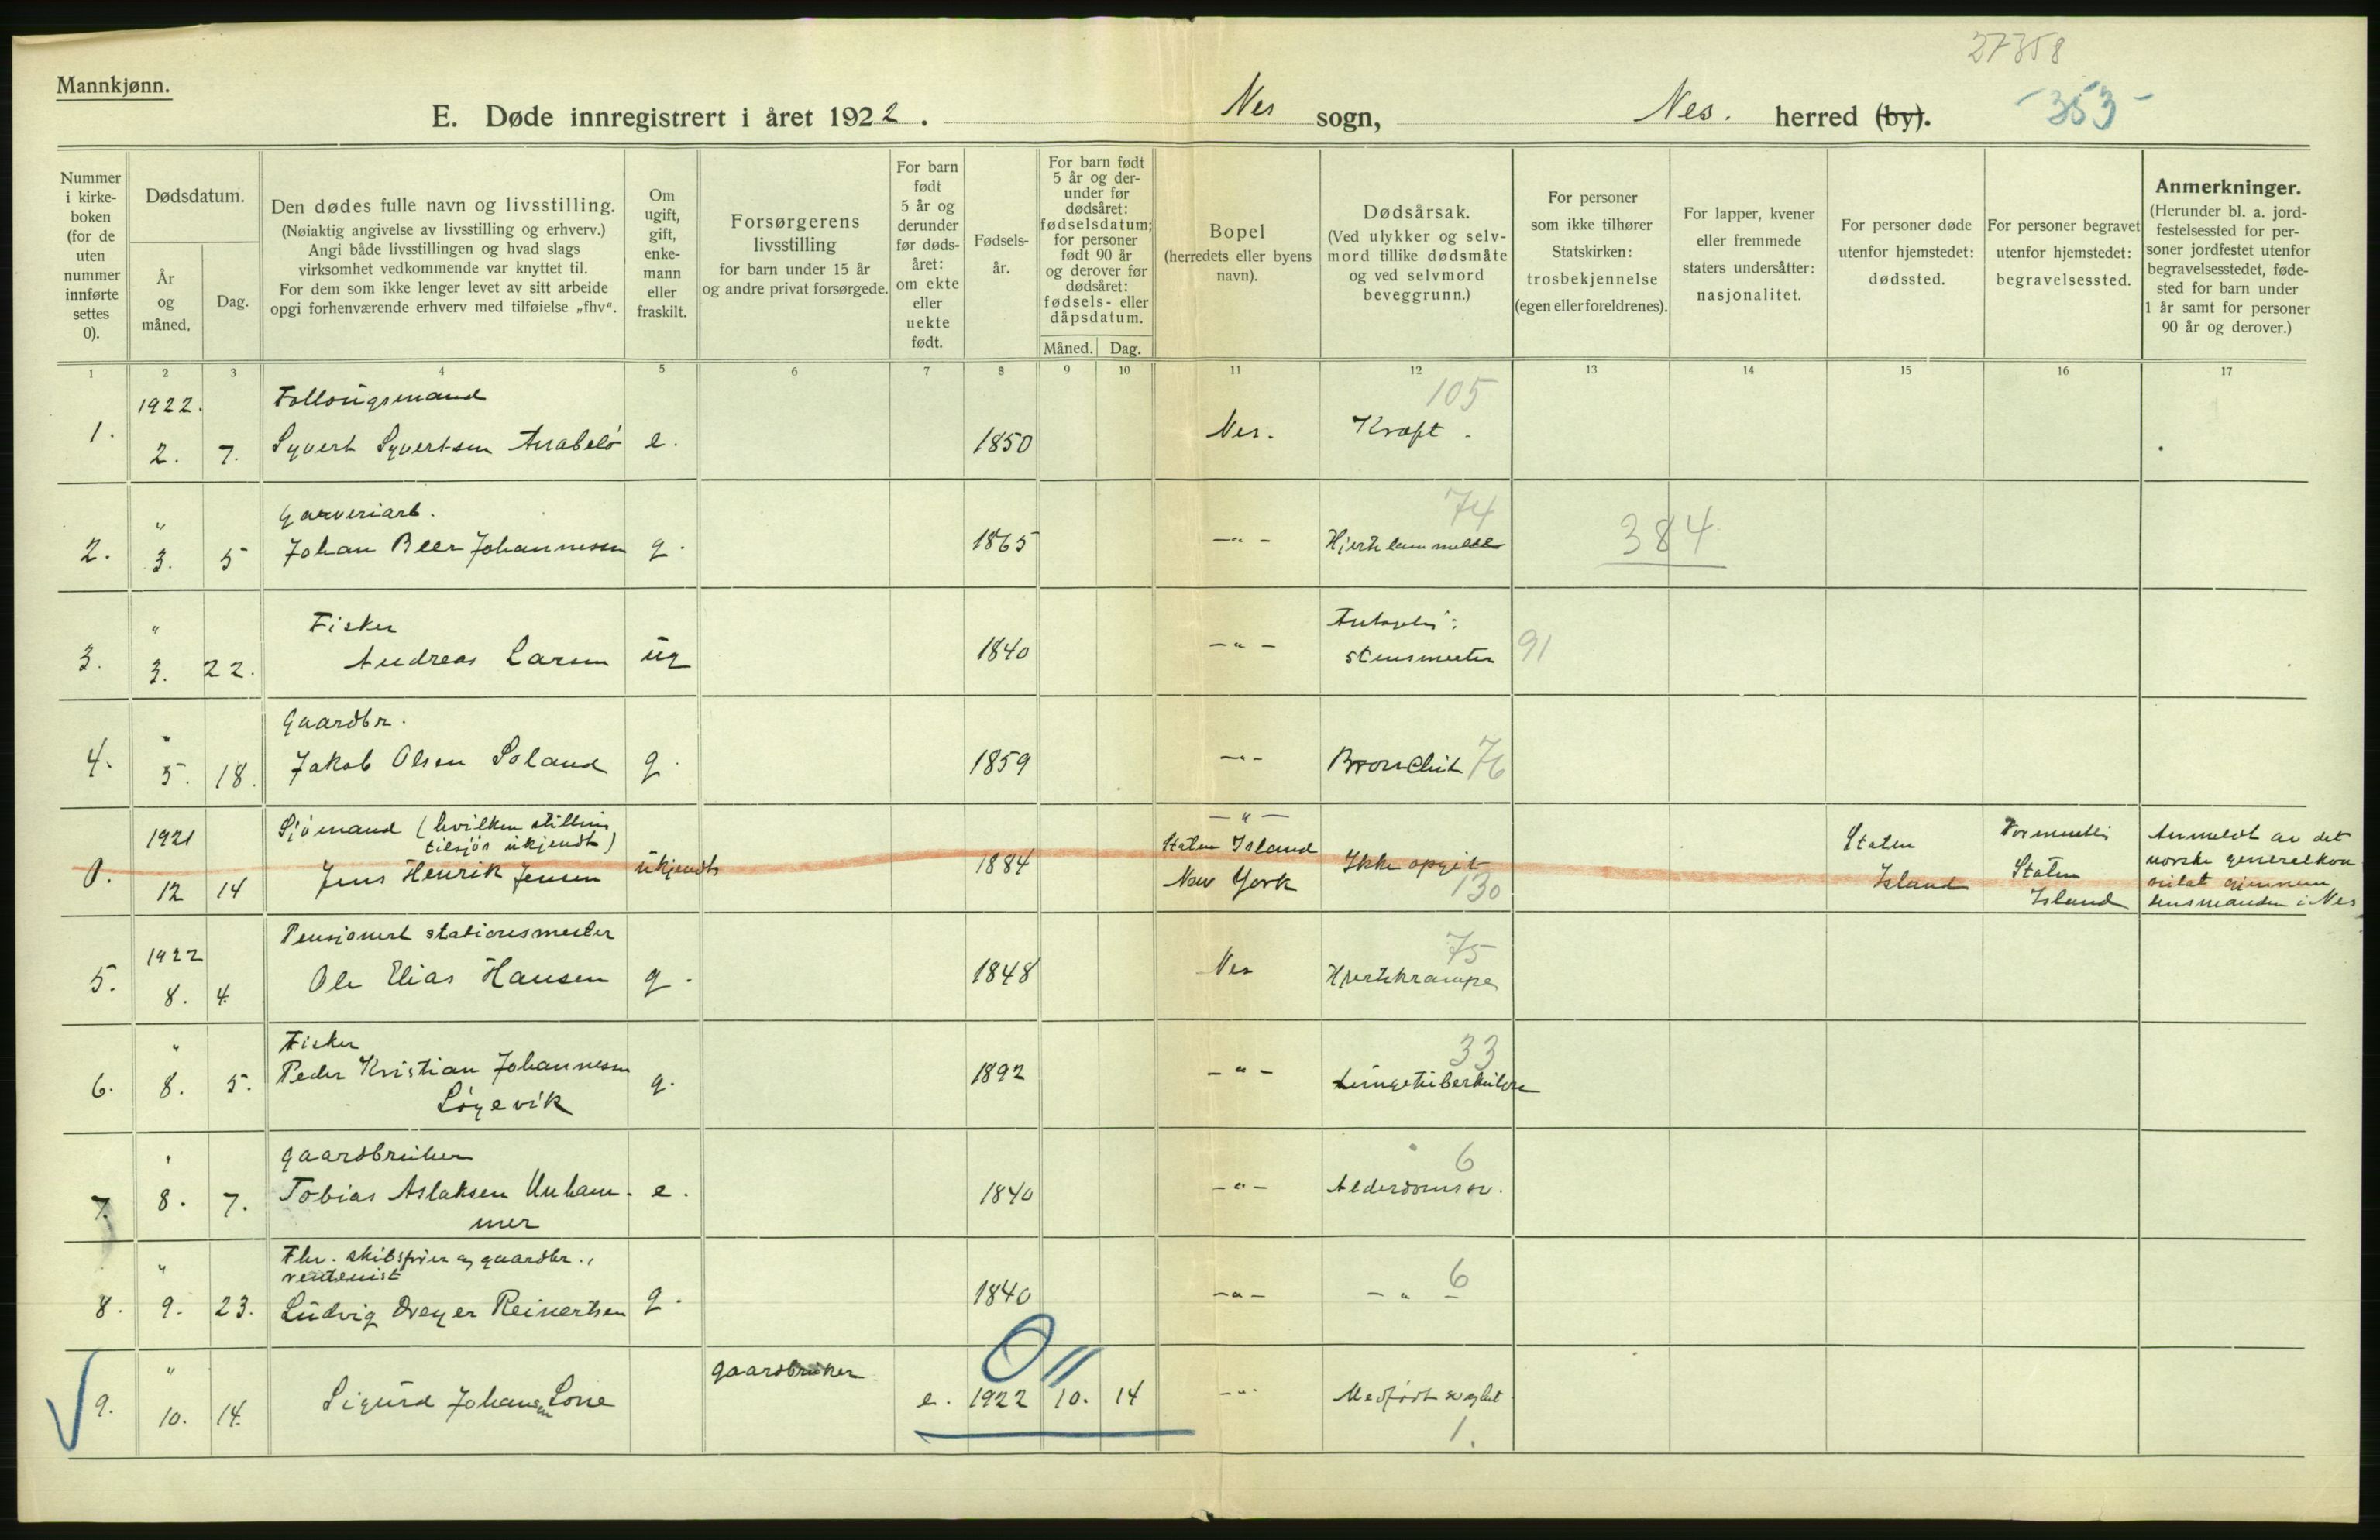 27358
Mannkjønn.
E. Døde innregistrert i året 1922. Nes sogn, Nes. herred (by). -353-
Nummer i kirkeboken (for de uten nummer innførte settes 0).
Dødsdatum.
År og måned.
Dag.
Den dødes fulle navn og livsstilling.
(Nøiaktig angivelse av livsstilling og erhverv.)
Angi både livsstillingen og hvad slags
virksomhet vedkommende var knyttet til.
For dem som ikke lenger levet av sitt arbeide
opgi forhenværende erhverv med tilføielse „fhv“.
Om ugift, gift, enkemann eller fraskilt.
Forsørgerens
livsstilling
for barn under 15 år
og andre privat forsørgede.
For barn født 5 år og derunder før dødsåret: om ekte eller uekte født.
Fødselsår.
For barn født
5 år og derunder før
dødsåret:
fødselsdatum;
for personer
født 90 år
og derover før
dødsåret:
fødsels- eller
dåpsdatum.
Måned. Dag.
Bopel
(herredets eller byens
navn).
Dødsårsak.
(Ved ulykker og selvmord tillike dødsmåte
og ved selvmord
beveggrunn.)
For personer
som ikke tilhører
Statskirken:
trosbekjennelse
(egen eller foreldrenes).
For lapper, kvener
eller fremmede
staters undersåtter:
nasjonalitet.
For personer døde
utenfor hjemstedet:
dødssted.
For personer begravet
utenfor hjemstedet:
begravelsessted.
Anmerkninger.
(Herunder bl. a. jordfestelsessted for personer jordfestet utenfor
begravelsesstedet, fødested for barn under
1 år samt for personer
90 år og derover.)
1 2 3 4 5 6 7 8 9 10 11 12 13 14 15 16 17
1922. 105
1. 2. 7. Syvert Syvertsen e. 1850 Nes. Kræft.
" Garveriarb. 74
2. 3. 5 Johan Beer Johannessen g. 1865 -"- 384
" Fisker
3. 3. 22. Andreas Larsen ug 1840 -"- 91
" Gaardbr.
4. 5. 18. Jakob Olsen Soland g. 1859 -"- Bronchit 76
1921 Sjömand (hvilken stilling -"-
tilsjös ukjendt) Staten Island Staten Formentlig Anmeldt av det
0. 12 14 Jens Henrik Jensen ukjendt 1884 New York Ikke opgit 130 Island Staten Island norske generalkonsulat gjennem
lensmanden i Nes
1922 Pensjonert stationsmester 75
5. 8. 4. Ole Elias Hansen g. 1848 Nes Hjertekrampe
" Fisker 33
6. 8. 5. Peder Kristian Johannessen g. 1892 -"- Lungetuberkulose
Lögevik
" Gaardbruker 6
7. 8. 7. Tobias Aslaksen Unhammer e. 1840 -"- Alderdomssv.
" Fhv. skibsfører og gaardbr.,
rentenist
8. 9. 23. Ludvig Dreyer Reinertsen g. 1840 -"- -"- 6
" Gaardbruker
9. 10. 14. Sigurd Johansen Lone e. 1922 10. 14 -"- Medfødt svakhet
1.